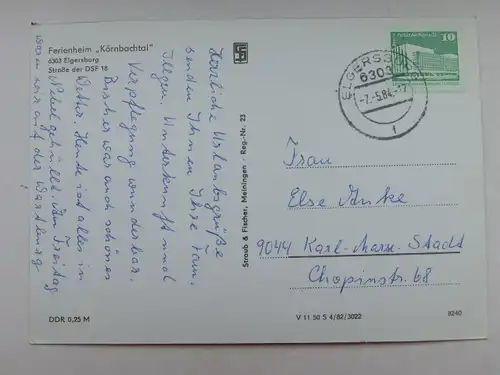 Ferienheim „Körnbachtal"
6303 Elgersburg
Straße der DSF 18
Herzliche Urlaubsgrüße
senden Ihnen Ihre Fam.
Illgen. Unterkunft und
Verpflegung wunderbar.
Bisher war auch schönes
Wetter. Heute ist alles in
Nebel gehüllt. Am Freitag
waren wir auf der Wartburg
!
DDR 0,25 M
Straub & Fischer, Meiningen · Reg.-Nr. 23
V 11 50 S 4/82/3022
8240
ELGERSBURG
6303
-7.-5.84.-17
1
10
Frau
Else Anke
9044 Karl-Marx-Stadt
Chopinstr. 68